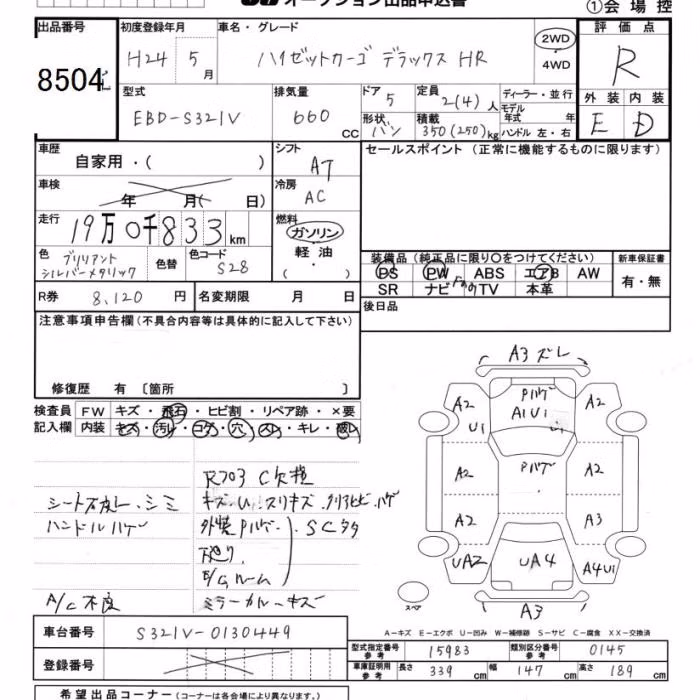 オークション出品申込書
①会場控
出品番号
8504
初度登録年月
H24 5月
車名・グレード
ハイゼットカーゴ デラックス HR
2WD
・
4WD
評価点
R
外装 内装
E D
型式
EBD-S321V
排気量
660 cc
ドア 5
定員 2(4)人
形状 バン
積載 350(250)kg
ディーラー・並行
モデル
年式 年
ハンドル 左・右
車歴
自家用・( )
シフト
AT
セールスポイント(正常に機能するものに限ります)
車検
年 月( 日)
冷房
AC
走行
19万0千833km
燃料
ガソリン
軽油
( ・ )
色
ブリリアント
シルバーメタリック
色替
色コード
S28
装備品(純正品に限り○をつけてください)
新車保証書
PS PW ABS エアB AW
SR ナビ TV 本革
有・無
R券 8,120 円
名変期限 月 日
後日品
注意事項申告欄(不具合内容等は具体的に記入して下さい)
修復歴 有〔箇所 〕
検査員
記入欄
FW キズ・飛石・ヒビ割・リペア跡・×要
内装 キズ・汚れ・コゲ・穴・スレ・キレ・破れ
R703 C欠種
シート穴 シミ
ハンドルハゲ
外装Pハゲ SCタタ
下廻り
E/Gルーム
A/C不良
A3 ズレ
A2 PハゲA1U1 A2
U1 U1
A2 Pハゲ A2
A2 A3
UA2 UA4 A4U1
スペア
A3
車台番号 S321V-0130449
A−キズ E−エクボ U−凹み W−補修跡 S−サビ C−腐食 XX−交換済
登録番号
型式指定番号
参考
15983
類別区分番号
参考
0145
車庫証明用
参考
長さ 339 cm 幅 147 cm 高さ 189 cm
希望出品コーナー(コーナーは各会場により異なります。)